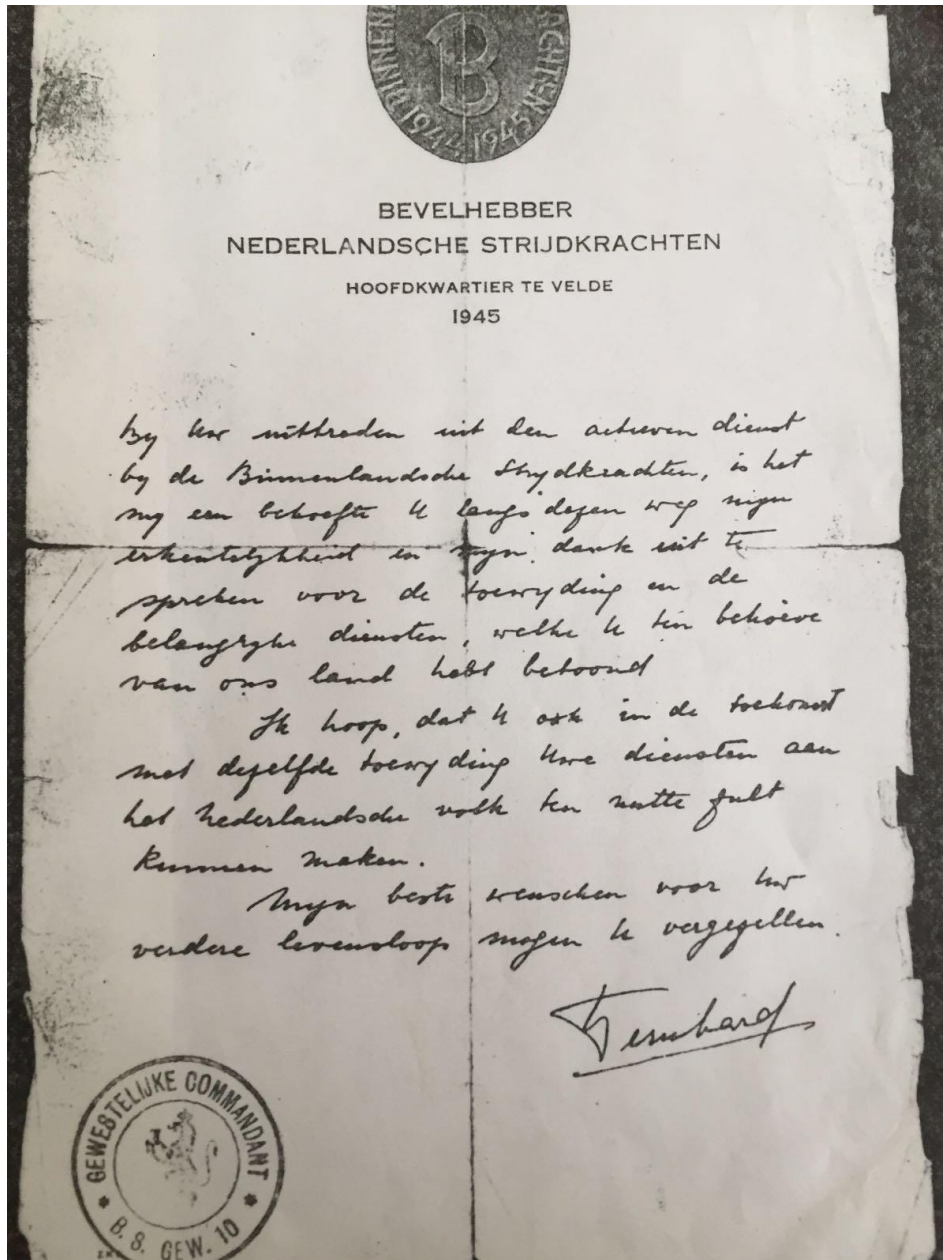 BINNEN
ACHTEN
B
1944 1945
BEVELHEBBER
NEDERLANDSCHE STRIJDKRACHTEN
HOOFDKWARTIER TE VELDE
1945
By Uw uittreden uit den actieven dienst
by de Binnenlandsche Strydkrachten, is het
my een behoefte U langs dezen weg myn
erkentelykheid en myn dank uit te
spreken voor de toewyding en de
belangryke diensten, welke U ten behoeve
van ons land hebt betoond
Ik hoop, dat U ook in de toekomst
met dezelfde toewyding Uwe diensten aan
het Nederlandsche volk ten nutte zult
kunnen maken.
Myn beste wenschen voor Uw
verdere levensloop mogen U vergezellen.
Bernhard
GEWESTELIJKE COMMANDANT
B. S. GEW. 10